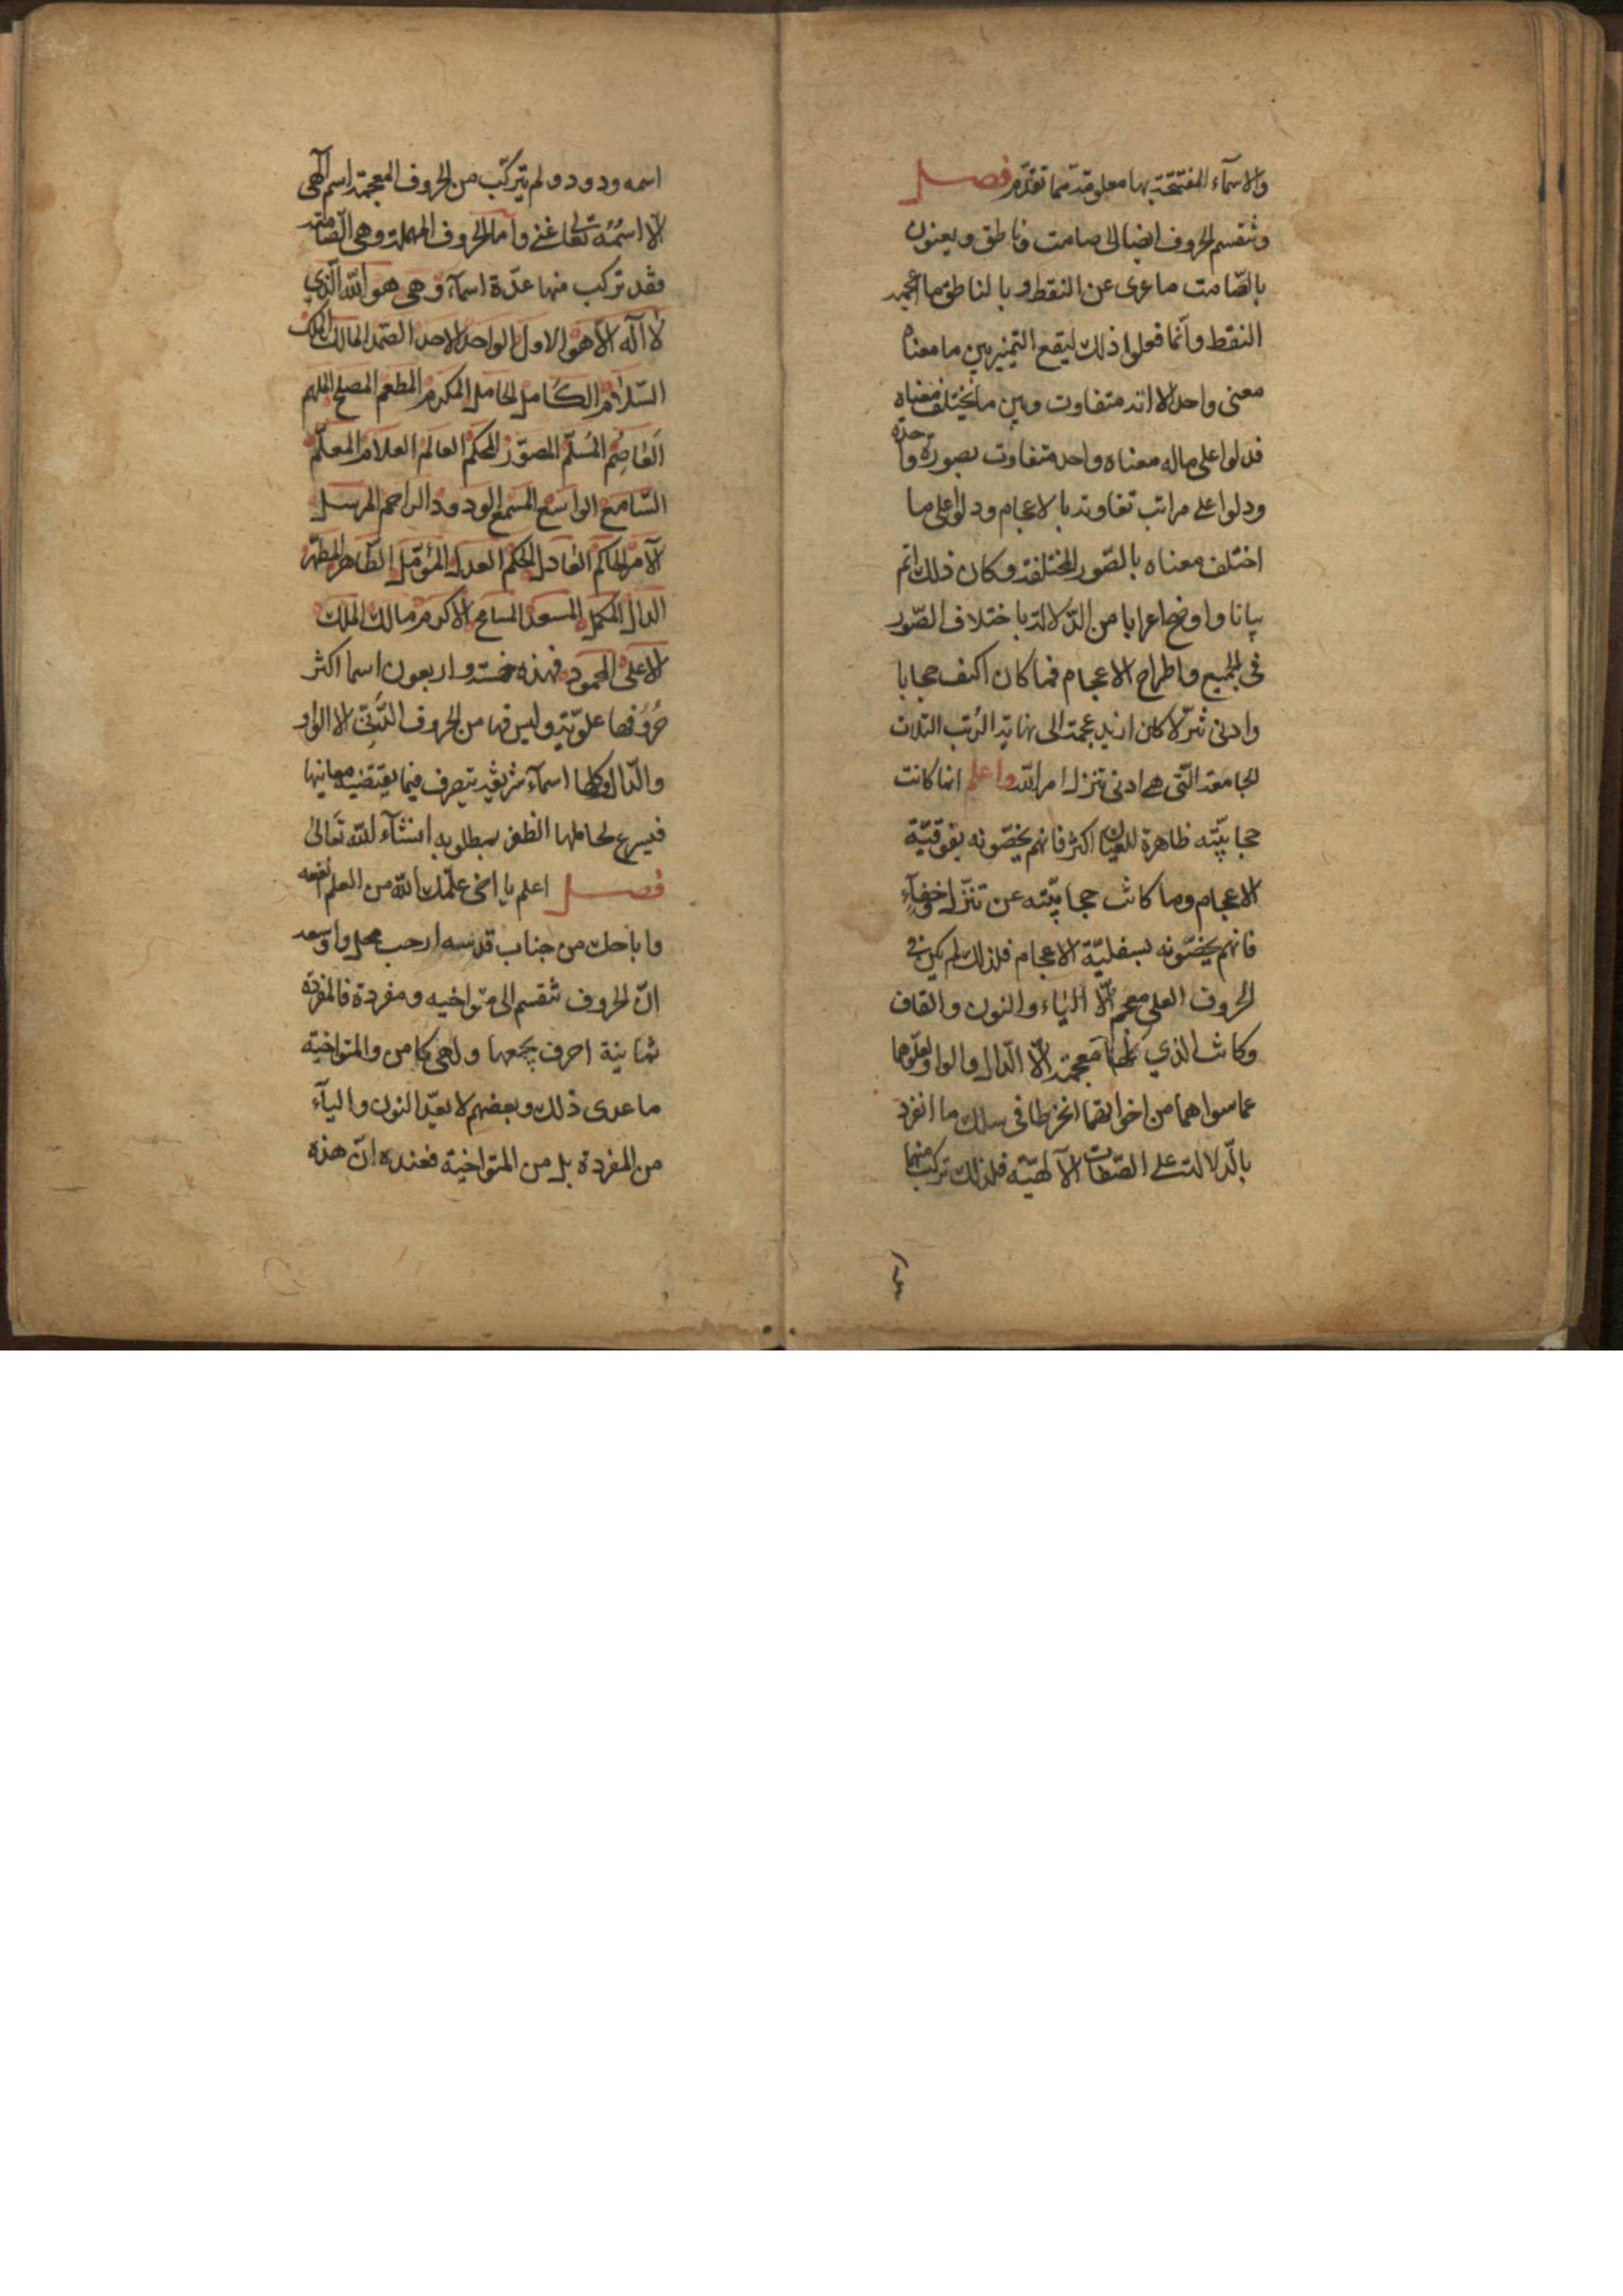 والاسمآء المفتتحة بها معلومة مما تقدّم فصل
وتنقسم الحروف ايضا الى صامت وناطق ويعنون
بالصّامت ما عرى عن النقط وبالناطق ما اعجمه
النقط وانّما فعلوا ذلك ليقع التمييز بين ما معناه
معنى واحد الا انه متفاوت وبين ما يختلف معناه
فدلوا على ماله معناه واحد متفاوت بصورة واحدة
ودلوا على مراتب تفاوته بالاعجام ودلوا على ما
اختلف معناه بالصّور المختلفة وكان ذلك اتم
بيانا واوضح اعرابا من الدّلالة باختلاف الصّور
فى الجميع واطراح الاعجام فما كان اكثف حجابا
وادنى تنزّلا كان ازيد عجمة الى نهاية الرّتب الثلاث
الجامعة الّتى هى ادنى تنزل امر الله واعلم انما كانت
حجابيّته ظاهرة للعيان اكثر فانهم يخصّونه بفوقيّة
الاعجام وما كانت حجابيّته عن تنزّل خفآء
فانهم يخصّونه بسفليّة الاعجام فلذلك لم يكن فى
الحروف العلى معجم الّا الياء والنون والقاف
وكانت الذي كلها معجمة الّا الدّال والواو ولعلوّهما
عما سواهما من اخواتهما انخرطا فى سلك ما انفرد
بالدّلالة على الصّفات الآلهيّة فلذلك تركب منهما
اسمه ودود ولم يتركّب من الحروف المعجمة اسم آلهى
الّا اسمُهُ تعالى غنى وامّا الحروف المهملة وهى الصّامتة
فقد تركب منها عدّة اسمآء وهى هو الله الّذي
لا اله الّا هو الاول الواحد الاحد الصّمد المالك الملك
السّلام الكامل الحامل المكرم المطعم المصلح الملهم
العَاصِم المُسلّم المصوّر المحكم العالم العلام المعلّم
السّامع الواسع المسمع الودود الراحم المرسل
الآمر الحاكم العادل الحكم العدل المؤمّل الطّاهر المطهّر
الدال المكمل المسعد المسامح الاكرم مالك الملك
الاعلى المحمود فهذه خمسة واربعون اسما اكثر
حُرُوفها علويّة وليس فيها من الحروف الدّنيّ الا الواو
والدّال وكلها اسمآء شريفة يتصرف فيما يقتضيه معانيها
فيسرع لحاملها الظفر بمطلوبه انشآء الله تَعالى
فصل اعلم يا اخى علّمك الله من العلم انفعه
واباحك من جناب قدسه ارحب محل واوسعه
انّ الحروف تنقسم الى متواخيه ومفردة فالمفردة
ثمانية احرف يجمعها ولهى كامن والمتواخية
ما عدى ذلك وبعضهم لا يعدّ النون واليآء
من المفردة بل من المتواخية فعنده انّ هذه